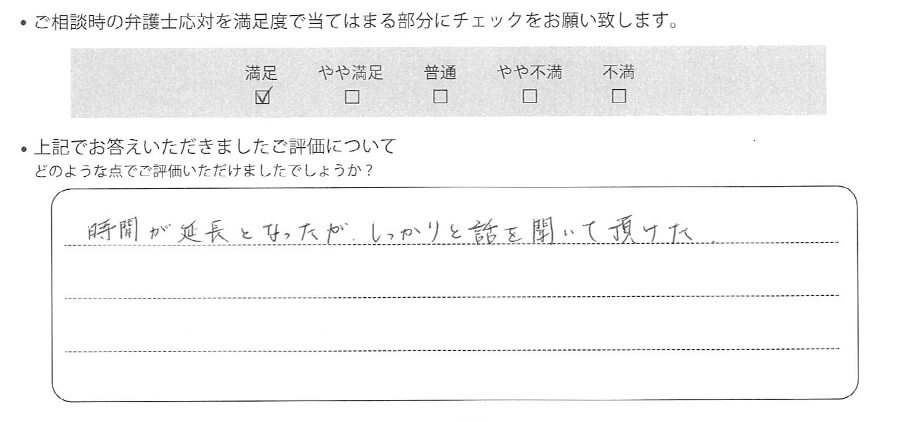 • ご相談時の弁護士応対を満足度で当てはまる部分にチェックをお願い致します。
満足 やや満足 普通 やや不満 不満
☑ □ □ □ □
• 上記でお答えいただきましたご評価について
どのような点でご評価いただけましたでしょうか？
時間が延長となったが、しっかりと話を聞いて頂けた。